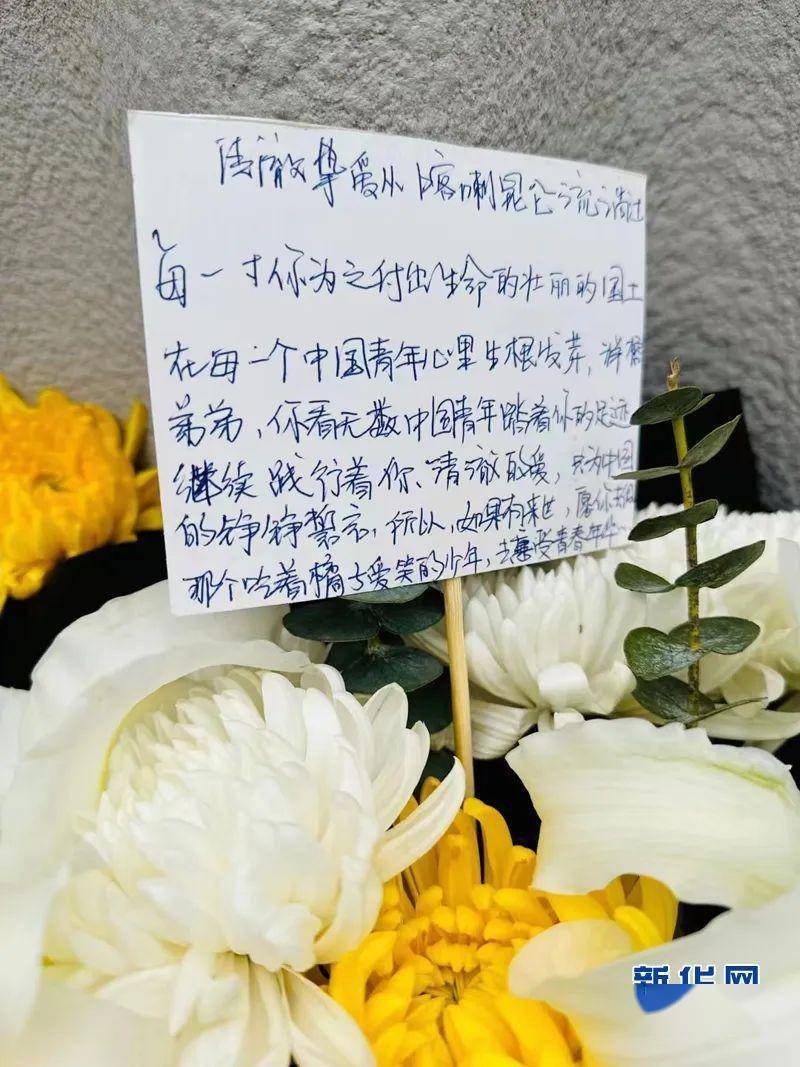 清澈挚爱从喀喇昆仑流淌过
每一寸你为之付出生命的壮丽的国土
在每一个中国青年心里生根发芽，祥榕
弟弟，你看无数中国青年踏着你的足迹
继续践行着你、清澈的爱，只为中国
的铮铮誓言，所以，如果有来世，愿你去做
那个吃着橘子爱笑的少年，去享受青春年华…
新华网